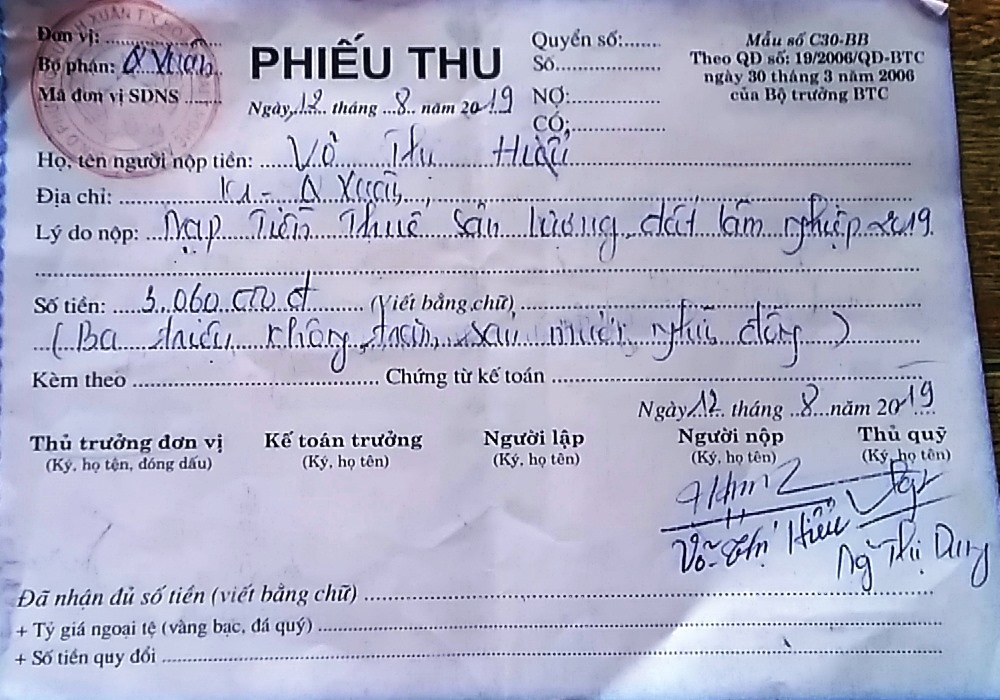 Đơn vị:
Bộ phận: Q Xuân
Mã đơn vị SDNS
PHIẾU THU
Ngày 12 tháng 8 năm 2019
Quyển số:
Số
NỢ:
CÓ:
Mẫu số C30-BB
Theo QĐ số: 19/2006/QĐ-BTC
ngày 30 tháng 3 năm 2006
của Bộ trưởng BTC
Họ, tên người nộp tiền: Võ Thị Hiếu
Địa chỉ: K1 - Q Xuân
Lý do nộp: Nạp Tiền Thuê sản lượng đất lâm nghiệp 2019.
Số tiền: 3.060.000 đ (Viết bằng chữ)
(Ba triệu, không trăm, sáu mươi nghìn đồng)
Kèm theo Chứng từ kế toán
Ngày 12 tháng 8 năm 2019
Thủ trưởng đơn vị Kế toán trưởng Người lập Người nộp Thủ quỹ
(Ký, họ tên, đóng dấu) (Ký, họ tên) (Ký, họ tên) (Ký, họ tên) (Ký, họ tên)
Võ Thị Hiếu Ng Thị Dung
Đã nhận đủ số tiền (viết bằng chữ)
+ Tỷ giá ngoại tệ (vàng bạc, đá quý)
+ Số tiền quy đổi